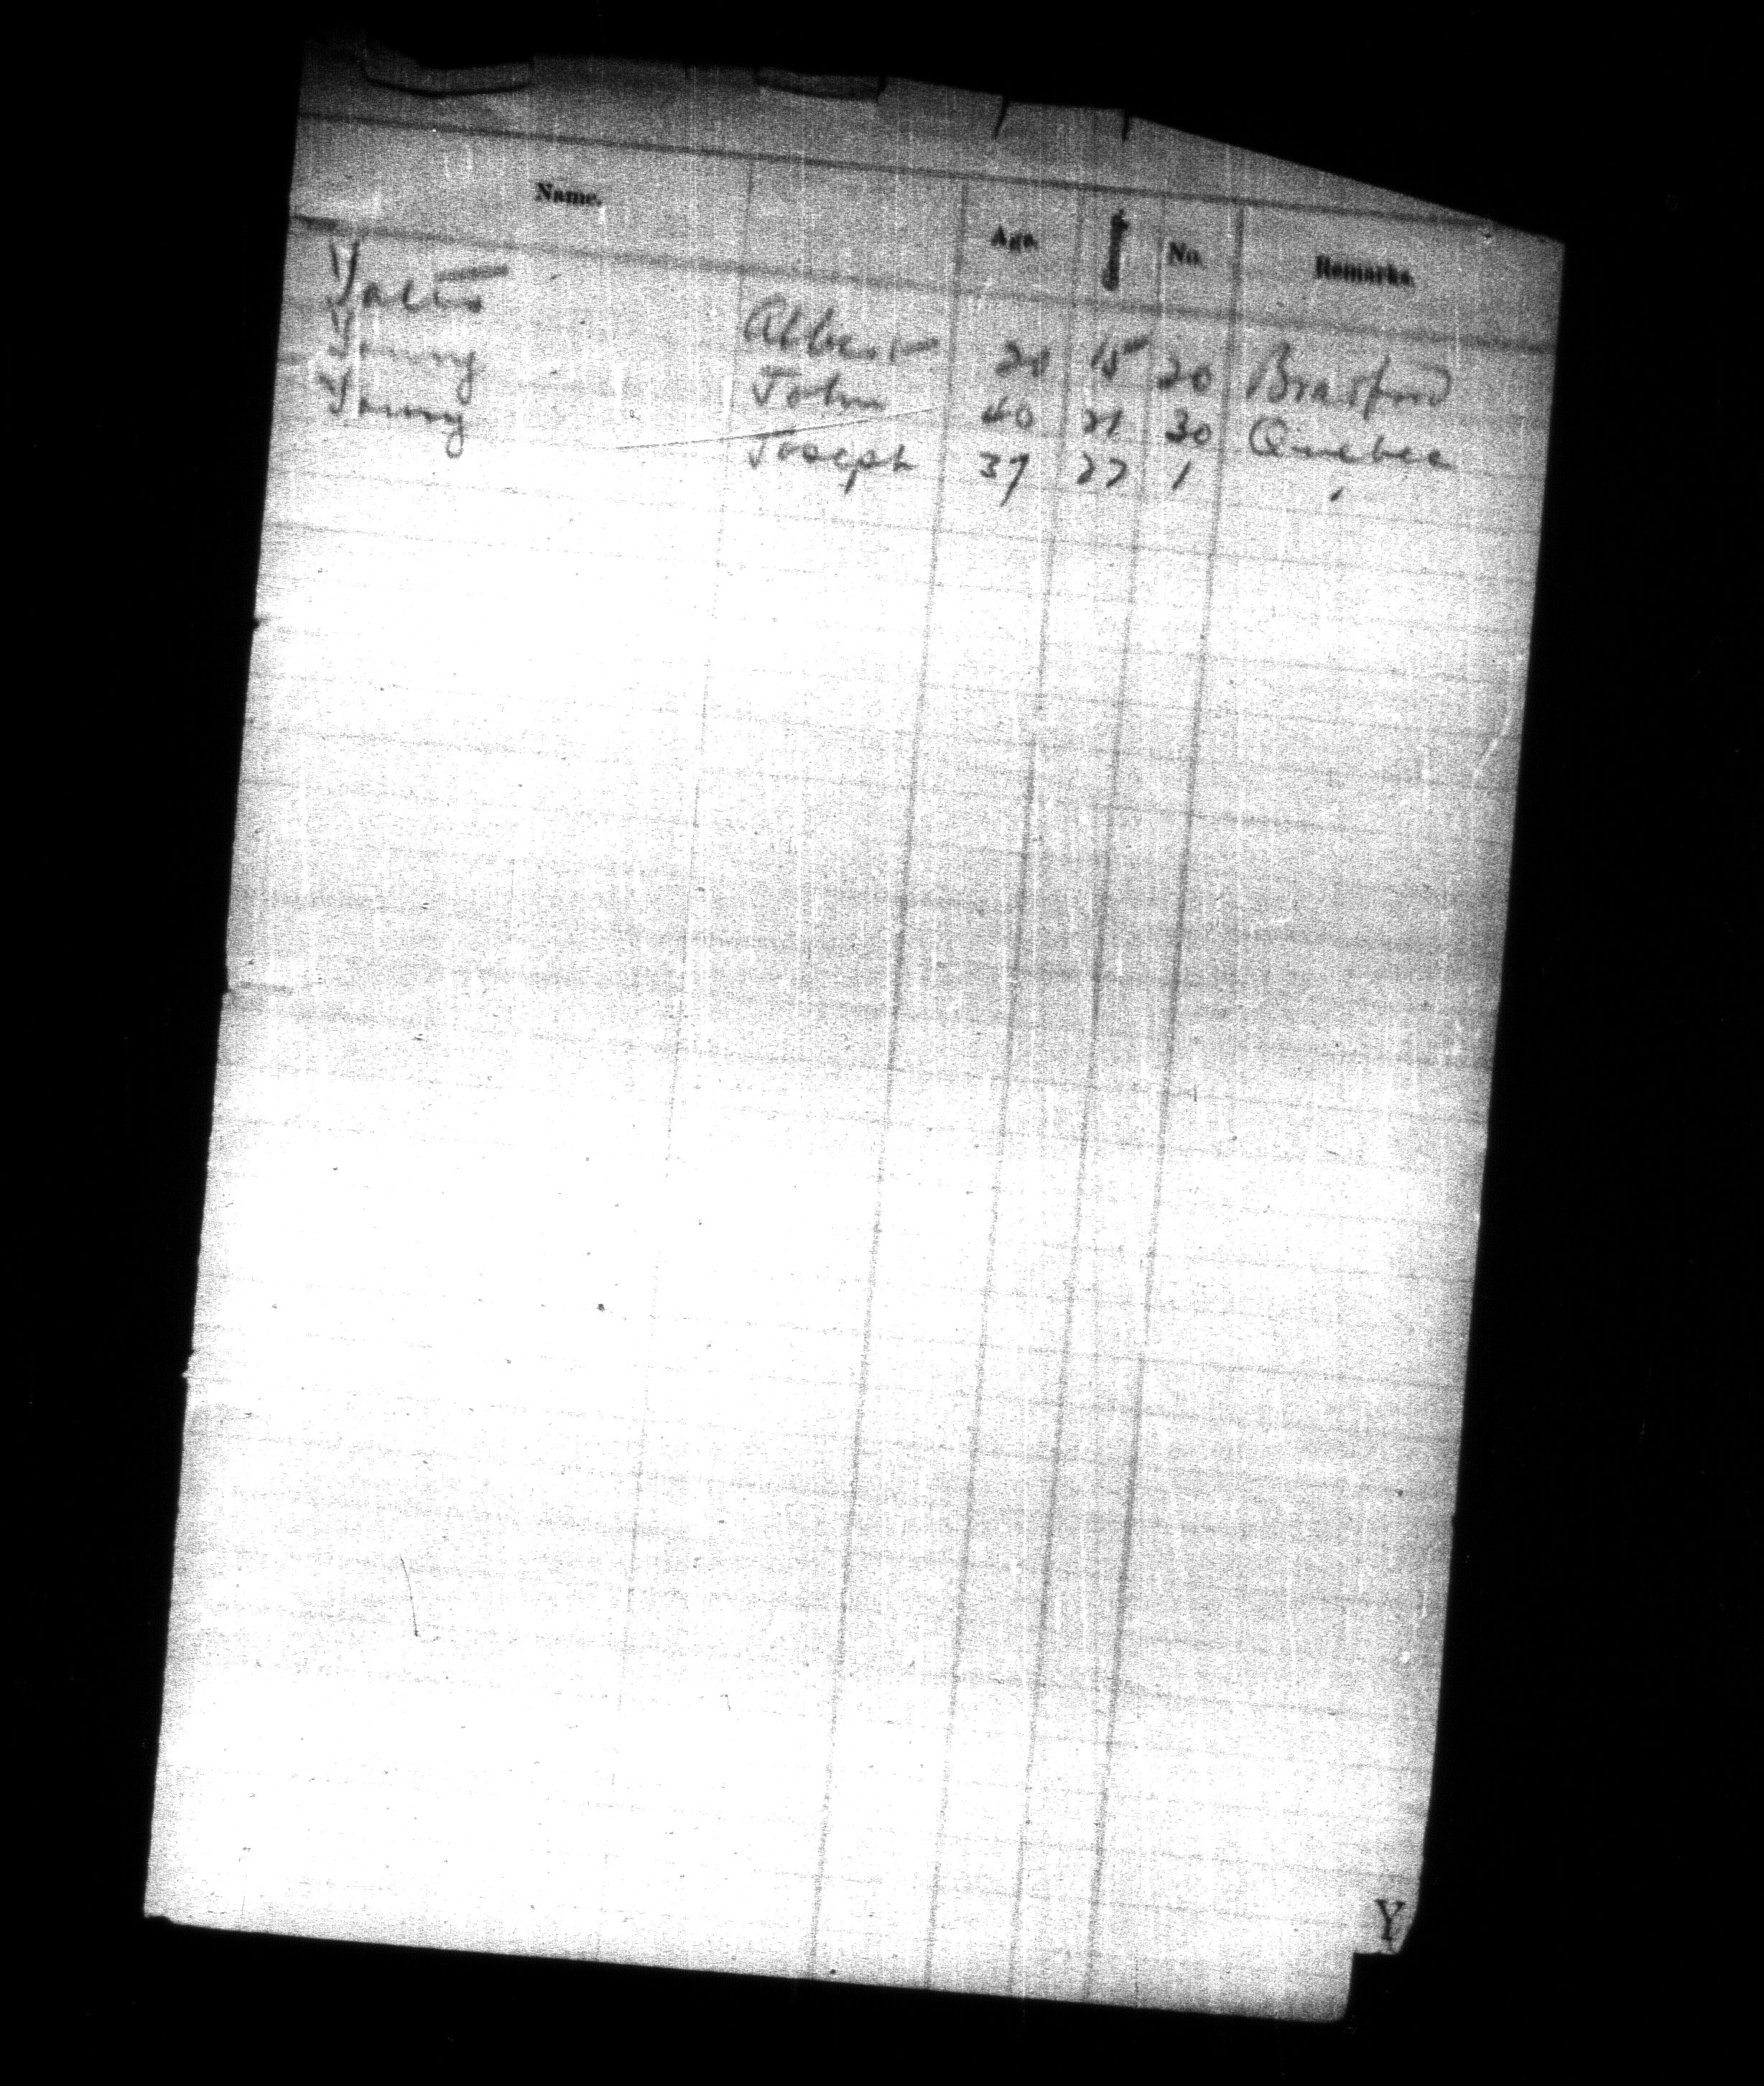 Name. Age. No. Remarks.
Yates Albert 20 15 20 Brasford
Young John 40 21 30 Quebec
Young Joseph 37 22 1 "
Y